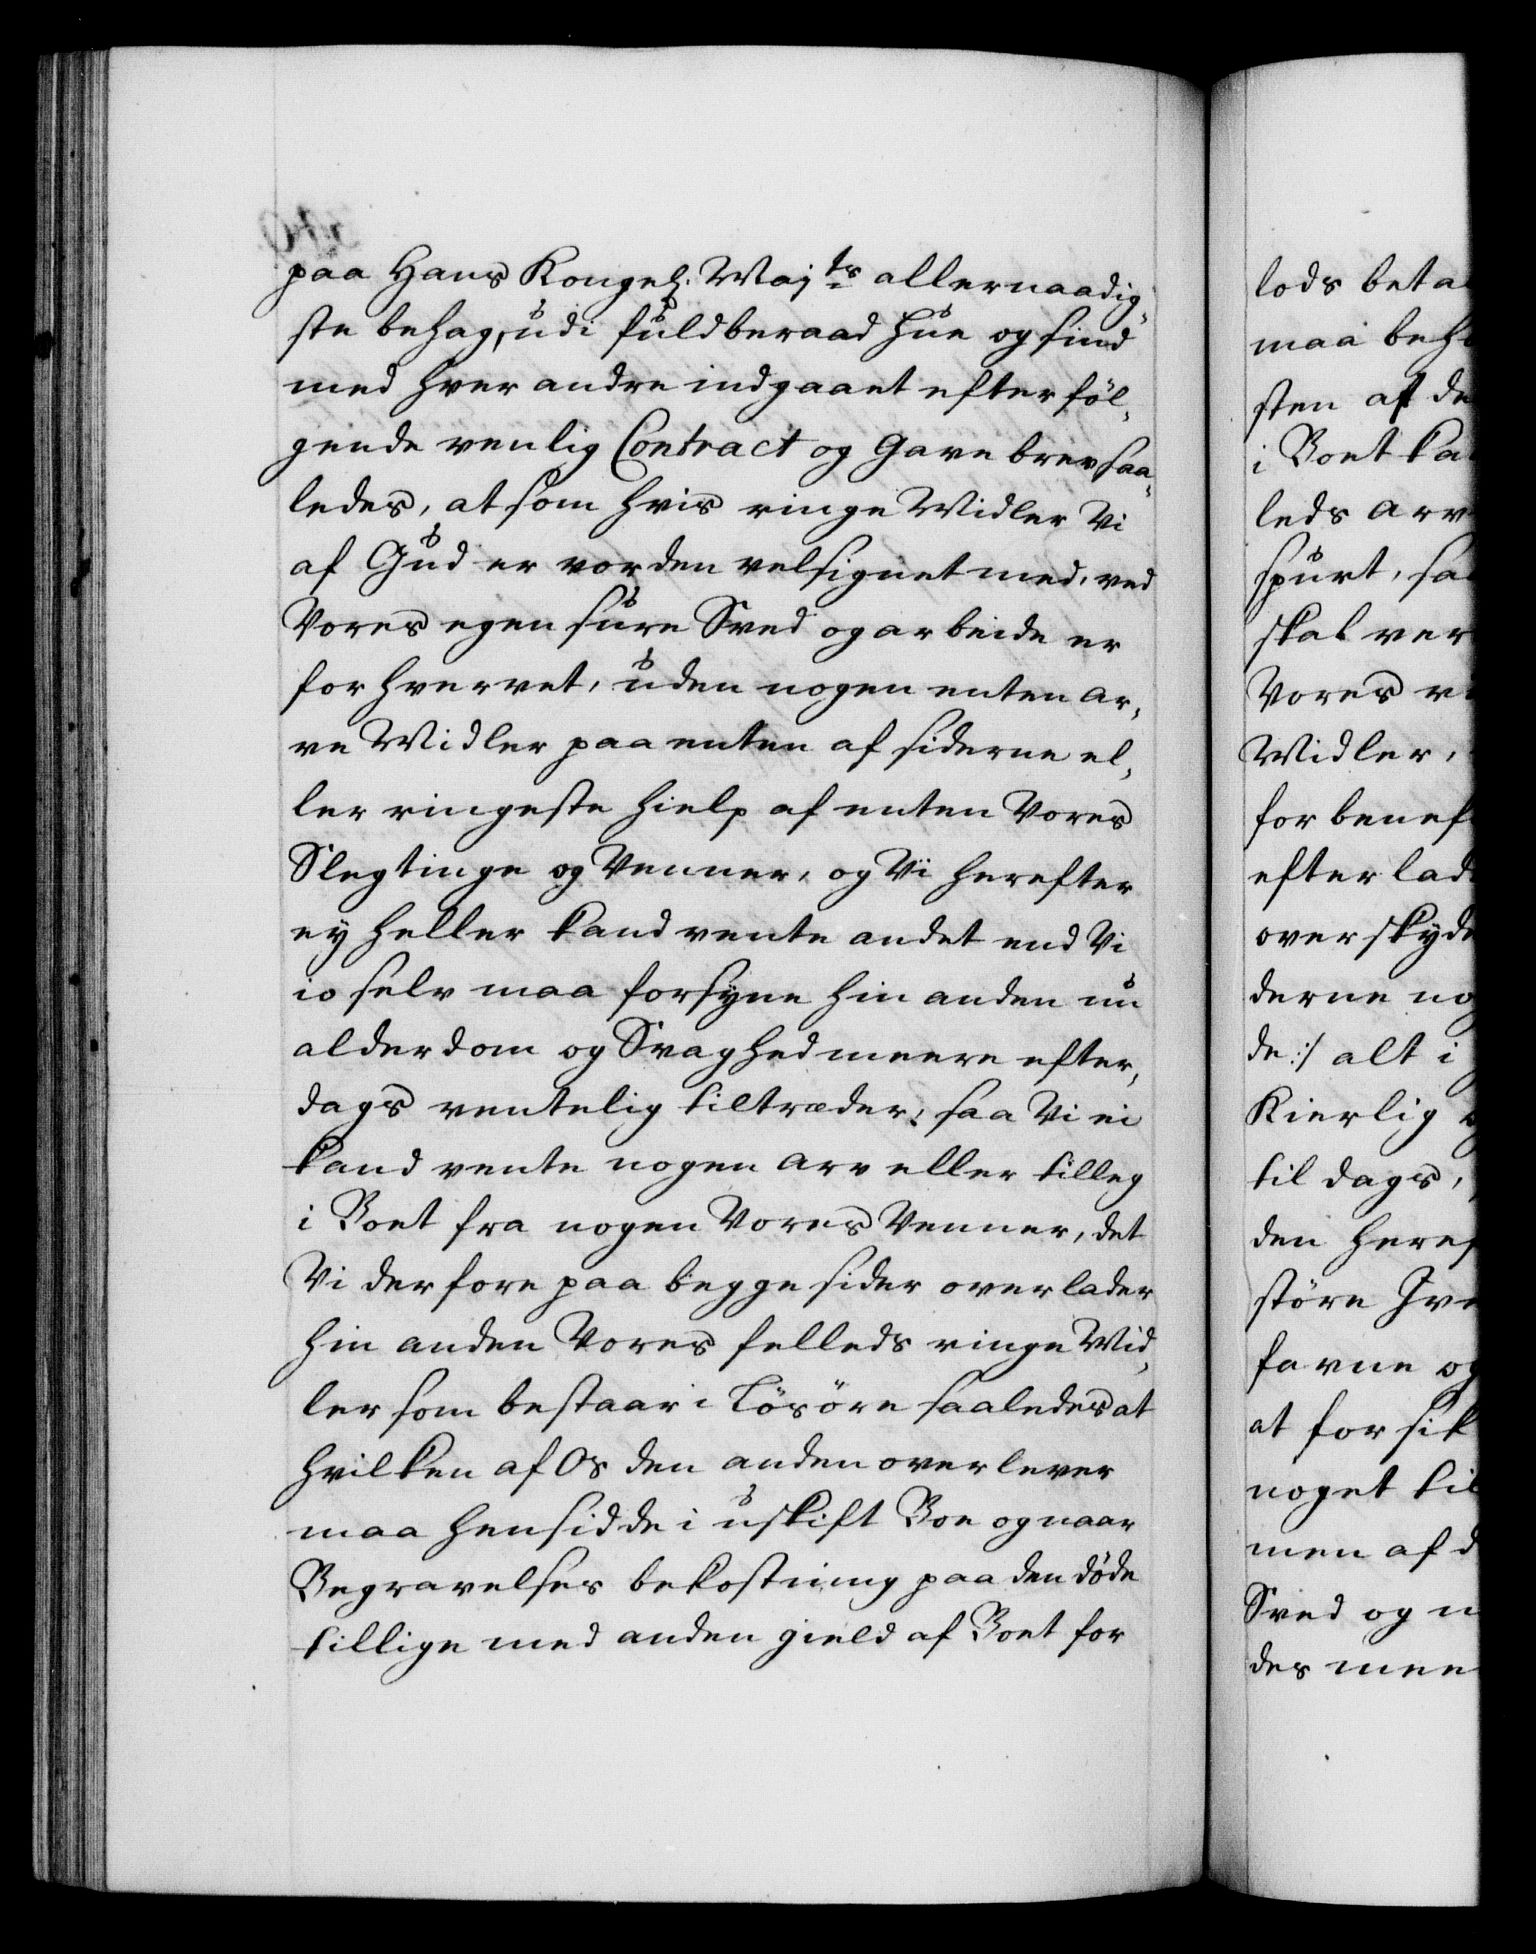 paa Hans Kongel: Maj:ts allernaadig-
ste behag, udi fuldberaad Hue og sind
med hver andre indgaaet efterföl-
gende venlig Contract og Gave brev saa-
ledes, at som hvis ringe Midler Vi
af Gud er vorden velsignet med, ved
Vores egen sure Sved og arbeide er
forhvervet, uden nogen enten ar-
ve Midler paa enten af siderne el-
ler ringeste hielp af enten Vores
Slegtinge og Venner, og Vi herefter
ey heller kand vente andet end Vi
io selv maa forsyne hin anden nu
alderdom og Svaghed meere efter-
dags ventelig tiltræder; saa Vi ei
kand vente nogen arv eller tilleg
i Boet fra nogen Vores Venner, det
Vi derfore paa begge sider overlader
hin anden Vores felleds ringe Mid-
ler som bestaar i Lösöre saaledes at
hvilken af Os den anden overlever
maa hensidde i uskift Boe og naar
Begravelses bekostning paa den döde
tillige med anden gield af Boet for
lods beta
maa beh
sten af de
i Boet ka
leds arv
spurt, sa
skal ver
Vores
Midler,
for benef
efterlad
overskyd
derne no
de :/ alt i
Kierlig
til dags,
den heref
störe
favne og
at forsik
noget til
men af d
Sved og
des mee